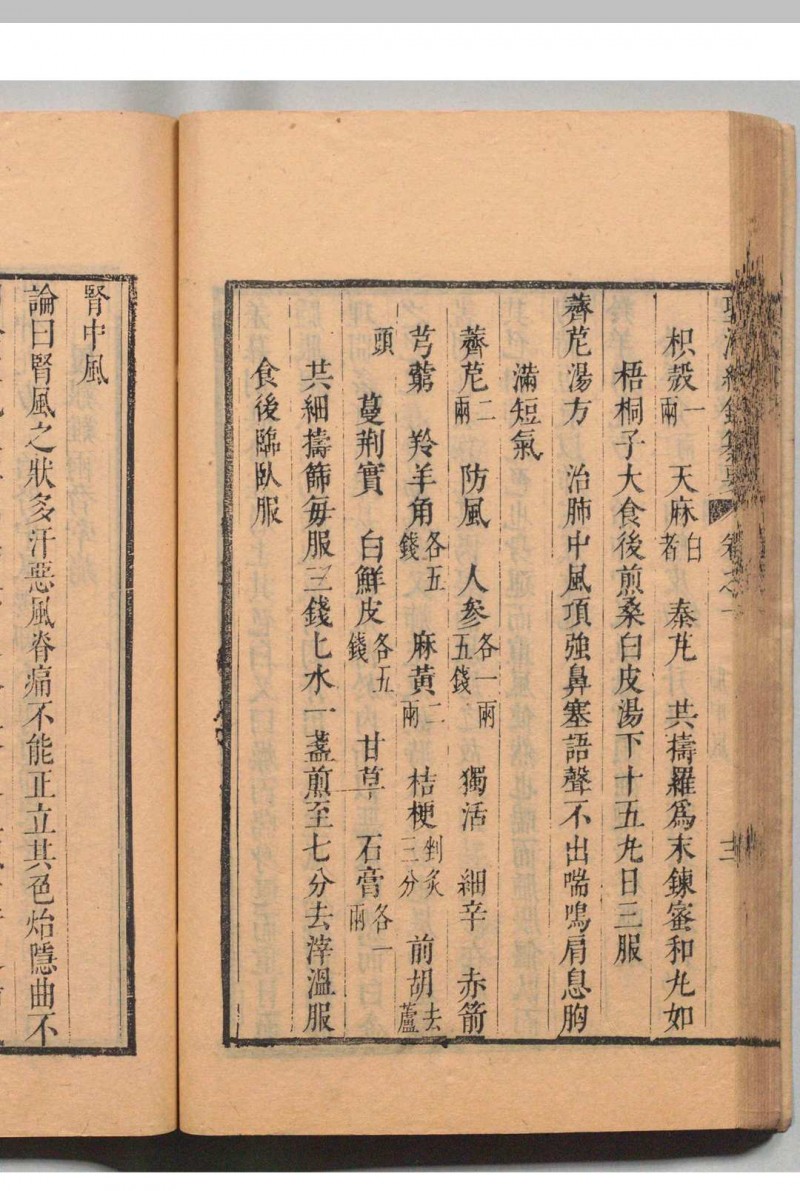 聖濟總錄纂要 卷之一 三
枳殼一兩 天麻 白者 秦艽 共擣羅爲末鍊蜜和丸如
梧桐子大食後煎桑白皮湯下十五丸日三服
薺苨湯方 治肺中風項強鼻塞語聲不出喘鳴肩息胸
滿短氣
薺苨二兩 防風 人參各一兩五錢 獨活 細辛 赤箭
芎藭 羚羊角各五錢 麻黃二兩 桔梗剉炙三分 前胡去蘆
頭 蔓荆實 白鮮皮各五錢 甘草 石膏各一兩
共細擣篩每服三錢匕水一盞煎至七分去滓溫服
食後臨臥服
腎中風
論曰腎風之狀多汗惡風脊痛不能正立其色炲隱曲不